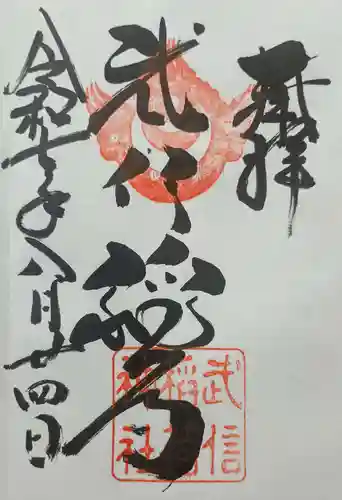 奉拝
武信稲荷
令和七年八月廿四日
武信
稲荷
神社